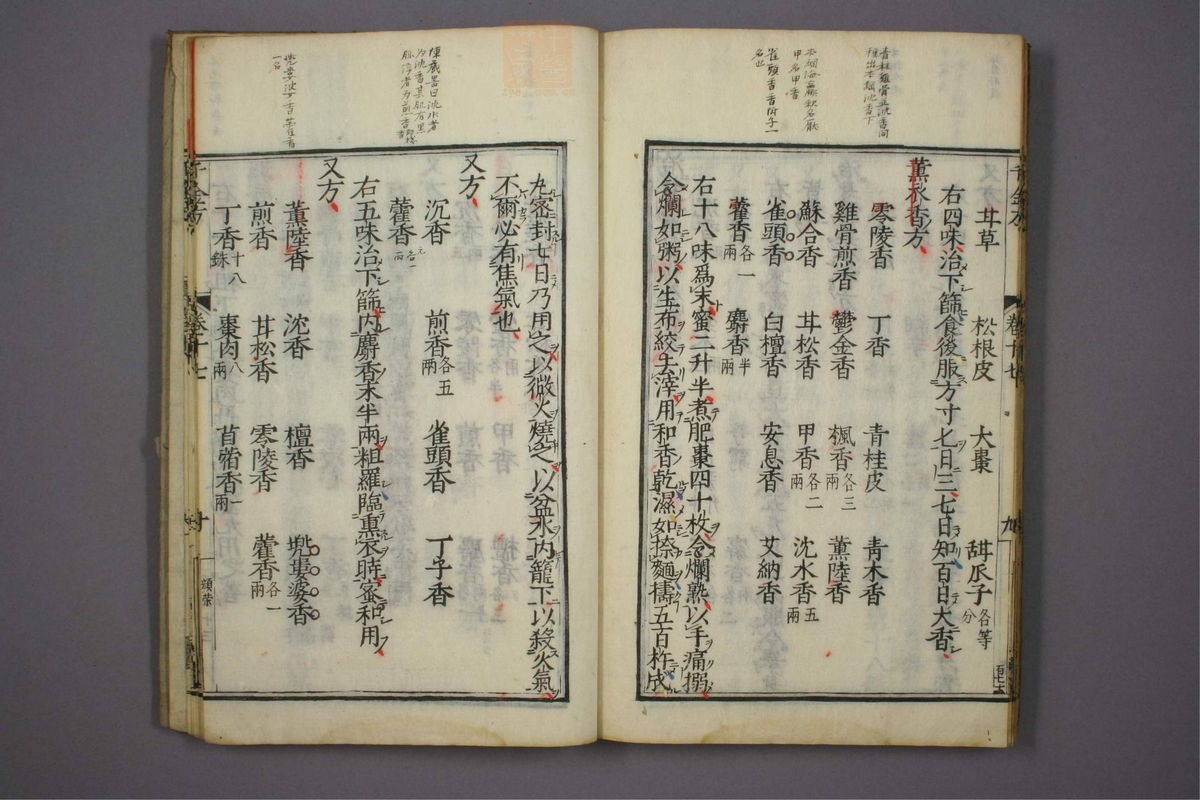 甘草　松根皮　大棗　甜瓜子各等分
右四味治下篩食後服方寸匕日三七日知百日大香
薰衣香方
零陵香　丁香　青桂皮　青木香
雞骨煎香　鬱金香　楓香各三兩　薰陸香
蘇合香　甘松香　甲香各二兩　沈水香五兩
雀頭香　白檀香　安息香　艾納香
藿香各一兩　麝香半兩
右十八味爲末蜜二升半煮肥棗四十枚令爛熟以手痛搦
令爛如粥以生布絞去滓用和香乾濕如捺麵擣五百杵成
丸密封七日乃用之以微火燒之以盆水內籠下以殺火氣
不爾必有焦氣也
又方
沉香　煎香各五兩　雀頭香　丁子香
藿香各一兩
右五味治下篩內麝香末半兩粗羅臨熏衣時蜜和用
又方
薰陸香　沈香　檀香　兜婁婆香
煎香　甘松香　零陵香　藿香各一兩
丁香十八銖　棗肉八兩　苜蓿香一兩